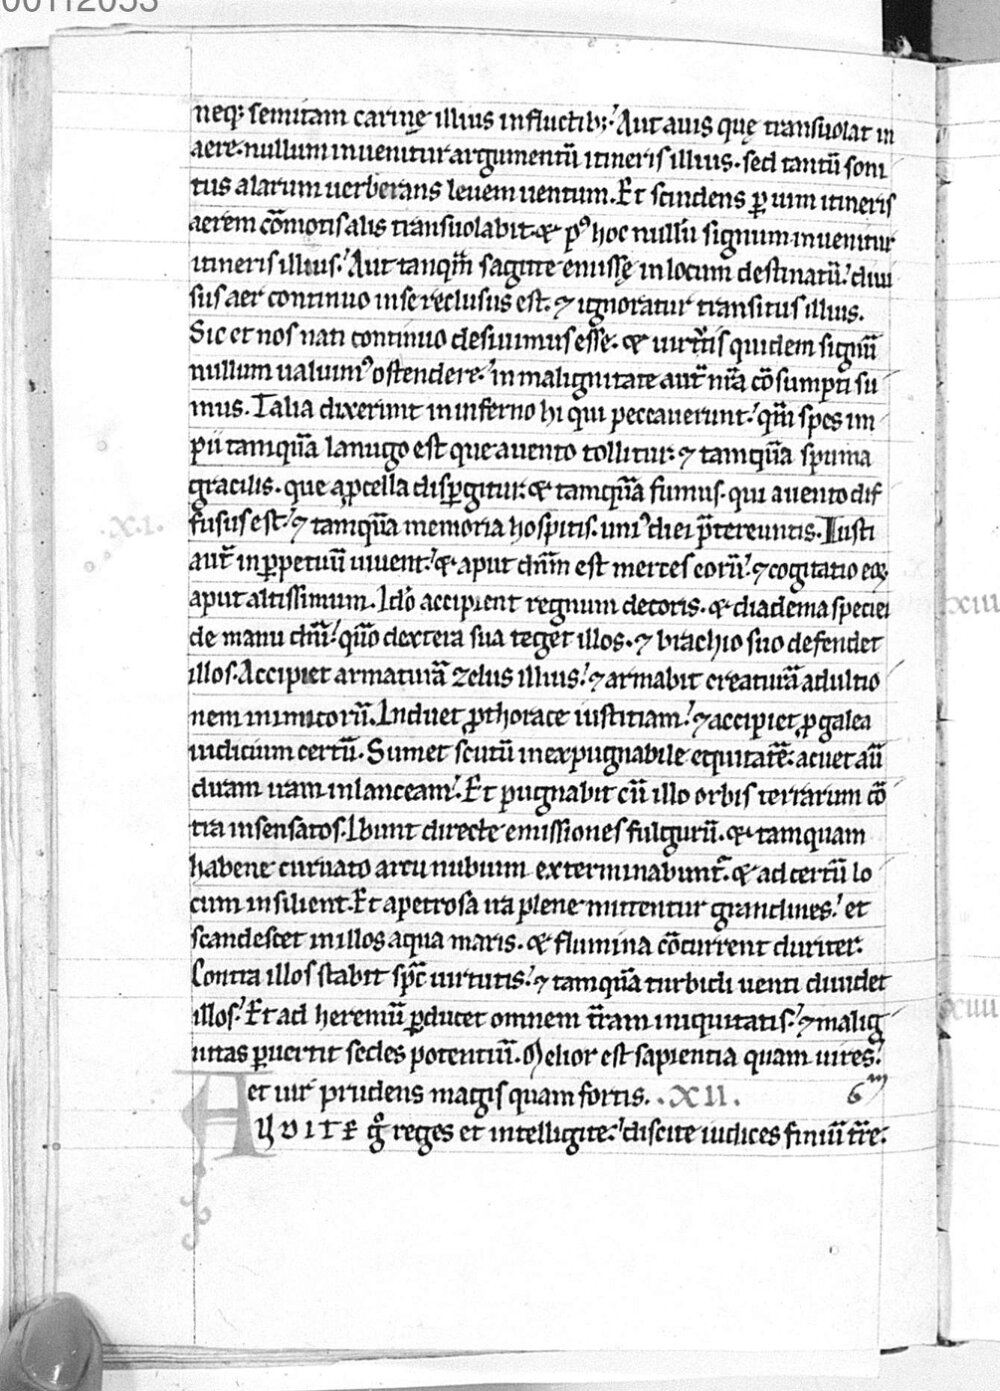 00112053
neq; semitam carinę illius in fluctib;. Aut auis quę transuolat in
aere. nullum inuenitur argumentū itineris illius. sed tantū soni
tus alarum uerberans leuem uentum. Et scindens ꝑ uim itineris
aerem cōmotis alis transuolabit. & pꝰ hoc nullū signum inuenitur
itineris illius. Aut tanqm̄ sagitte emissę in locum destinatū. diui
sus aer continuo in se reclusus est. ⁊ ignoratur transitus illius.
Sic et nos nati continuo desiuimus esse. & uirtt̄is quidem signū
nullum ualuimꝰ ostendere. in malignitate aut̄ nr̄a cōsumpti su
mus. Talia dixerunt in inferno hi qui peccauerunt. qm̄ spes im
pii tamquā lanugo est que a uento tollitur. ⁊ tamquā spuma
gracilis. que a ꝓcella disꝑgitur. & tamquā fumus. qui a uento dif
fusus est. ⁊ tamquā memoria hospitis. uniꝰ diei p̄tereuntis. Iusti
.XI.
aut̄ in ꝑpetuū uiuent. & aput dn̄m est merces eorū. ⁊ cogitatio eoꝝ
aput altissimum. Ido accipient regnum decoris. & diadema speciei
xiii
de manu dn̄i. qm̄o dextera sua teget illos. ⁊ brachio suo defendet
illos. Accipiet armaturā zelus illius. ⁊ armabit creaturā ad ultio
nem inimicorū. Induet ꝓ thorace iustitiam. ⁊ accipiet ꝓ galea
iudicium certū. Sumet scutū inexpugnabile equitatē. acuet aū
duram iram in lanceam. Et pugnabit cū illo orbis terrarum cō
tra insensatos. Ibunt directe emissiones fulgurū. & tamquam
habene curuato arcu nubium exterminabunt̄. & ad certū lo
cum insilient. Et a petrosa ira plene mittentur grandines. et
scandescet in illos aqua maris. & flumina cōcurrent duriter.
Contra illos stabit spc̄ uirtutis. ⁊ tamquā turbidi uenti diuidet
illos. Et ad heremū ꝑducet omnem t̄ram iniquitatis. ⁊ malig
xiiii
nitas ꝑuertit sedes potentiū. Melior est sapientia quam uires.
et uir prudens magis quam fortis. .XII. 6m
AUDITE gͦ reges et intelligite. discite iudices finiū t̄re.